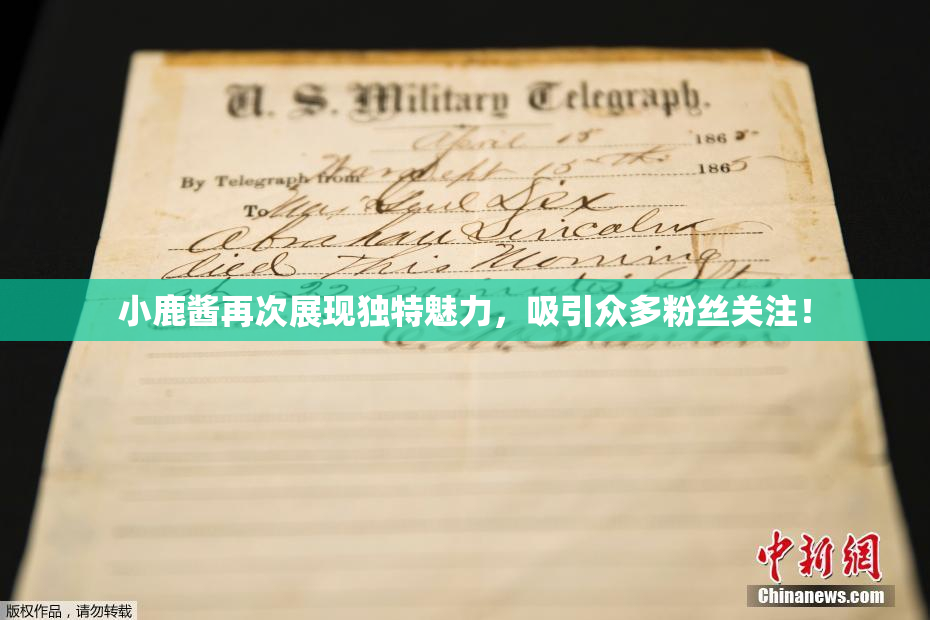 U. S. Military Telegraph.
April 15 1865
By Telegraph from War Dept 15th 1865
To Maj Genl Dix
Abraham Lincoln
died This Morning
at 22 minutes after
小鹿酱再次展现独特魅力，吸引众多粉丝关注！
中新网
Chinanews.com
版权作品，请勿转载